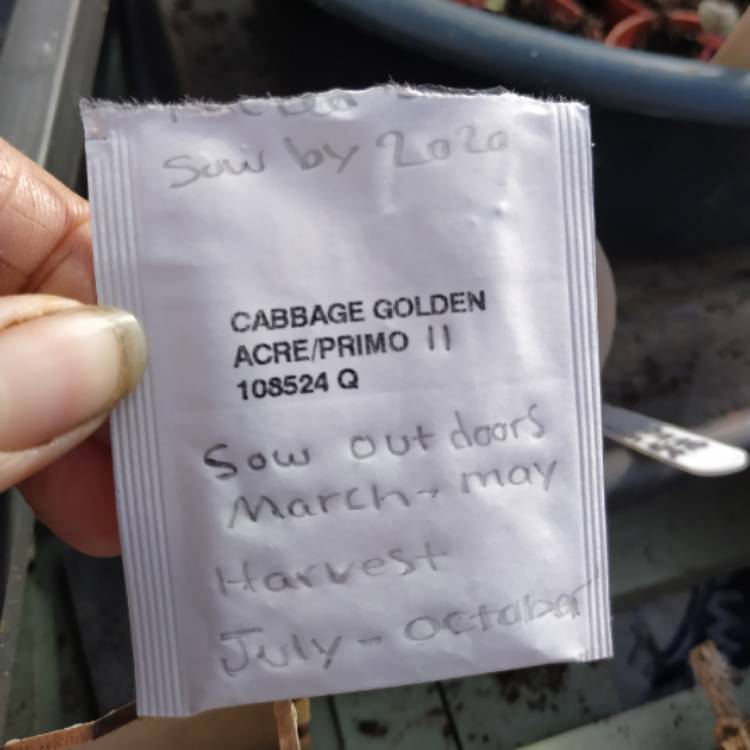 Sow by 2020
CABBAGE GOLDEN
ACRE/PRIMO II
108524 Q
Sow outdoors
March - may
Harvest
July - october